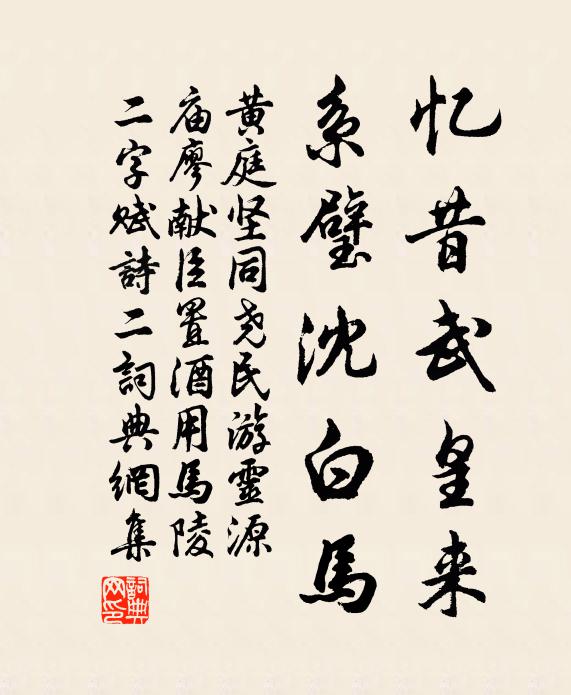 忆昔武皇来
系璧沈白马
黄庭坚同尧民游灵源
庙廖献臣置酒用马陵
二字赋詩二詞典網集
詞典
网印